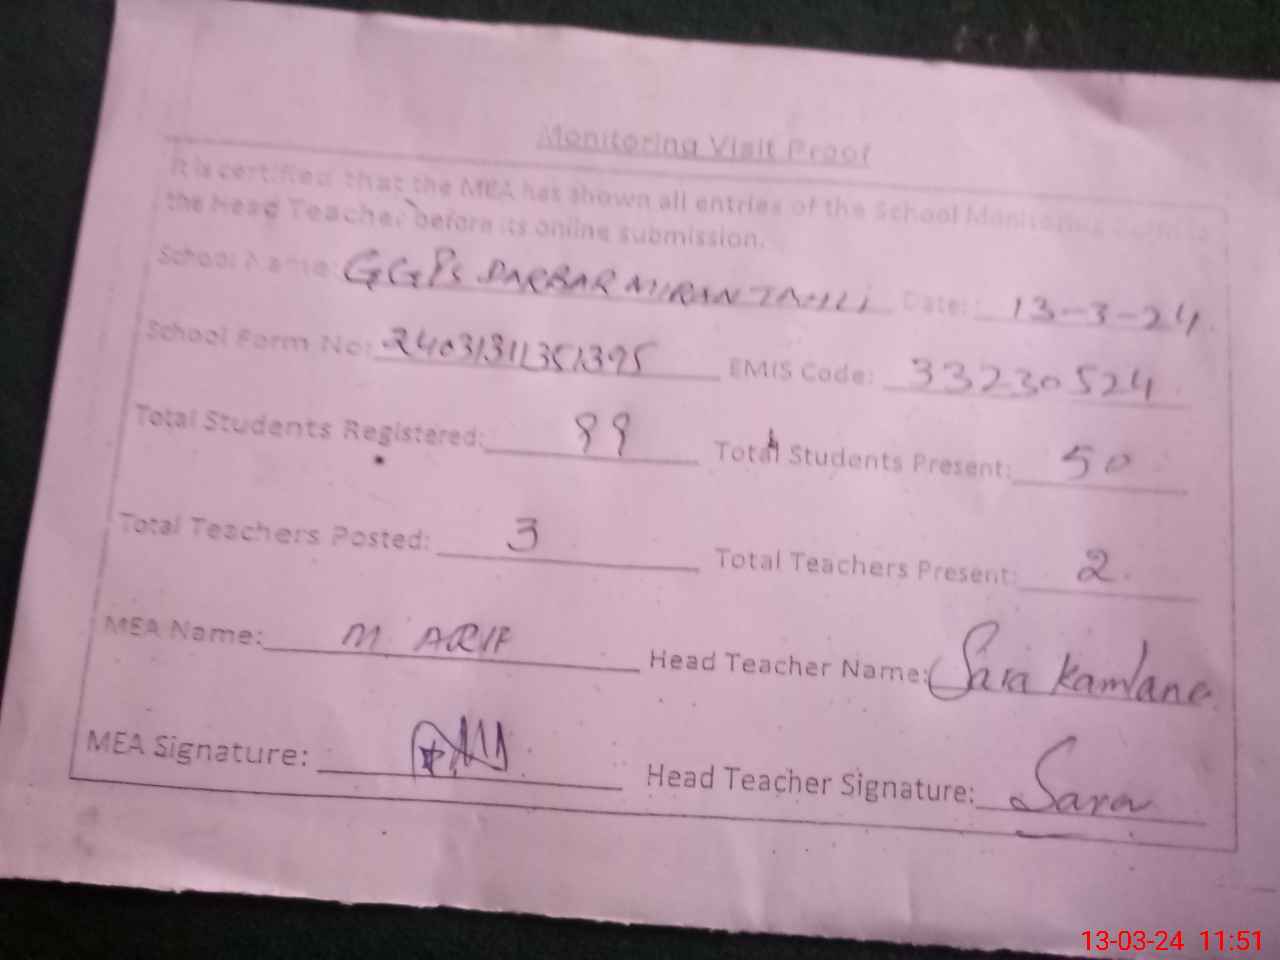 Monitoring Visit Proof
It is certified that the MEA has shown all entries of the School Monitoring
the Head Teacher before its online submission.
School Name: GGPS DARBAR MIRAN Date: 13-3-24
School Form No: EMIS Code: 33230524
Total Students Registered: 99 Total Students Present: 50
Total Teachers Posted: 3 Total Teachers Present: 2
MEA Name: M ARIF Head Teacher Name: Sara
MEA Signature: Head Teacher Signature: Sara
13-03-24 11:51